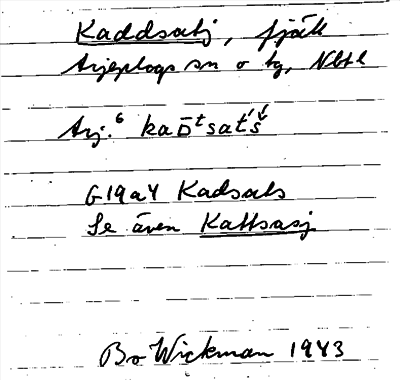 Kaddsatj, fjäll
Arjeplogs sn o tg, Nbtl
Arj.⁶ kaᴅ̄ᵗsat́š́
G19a4 Kadsats
Se även Kattsasj
Bo Wickman 1943